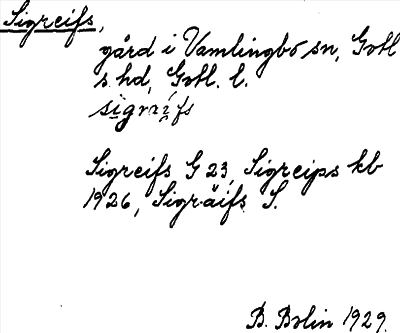 Sigreifs,
gård i Vamlingbo sn, Gotl
s. hd, Gotl. l.
Sigreifs G 23, Sigreips kb
1926, Sigräifs S.
B. Bolin 1929.